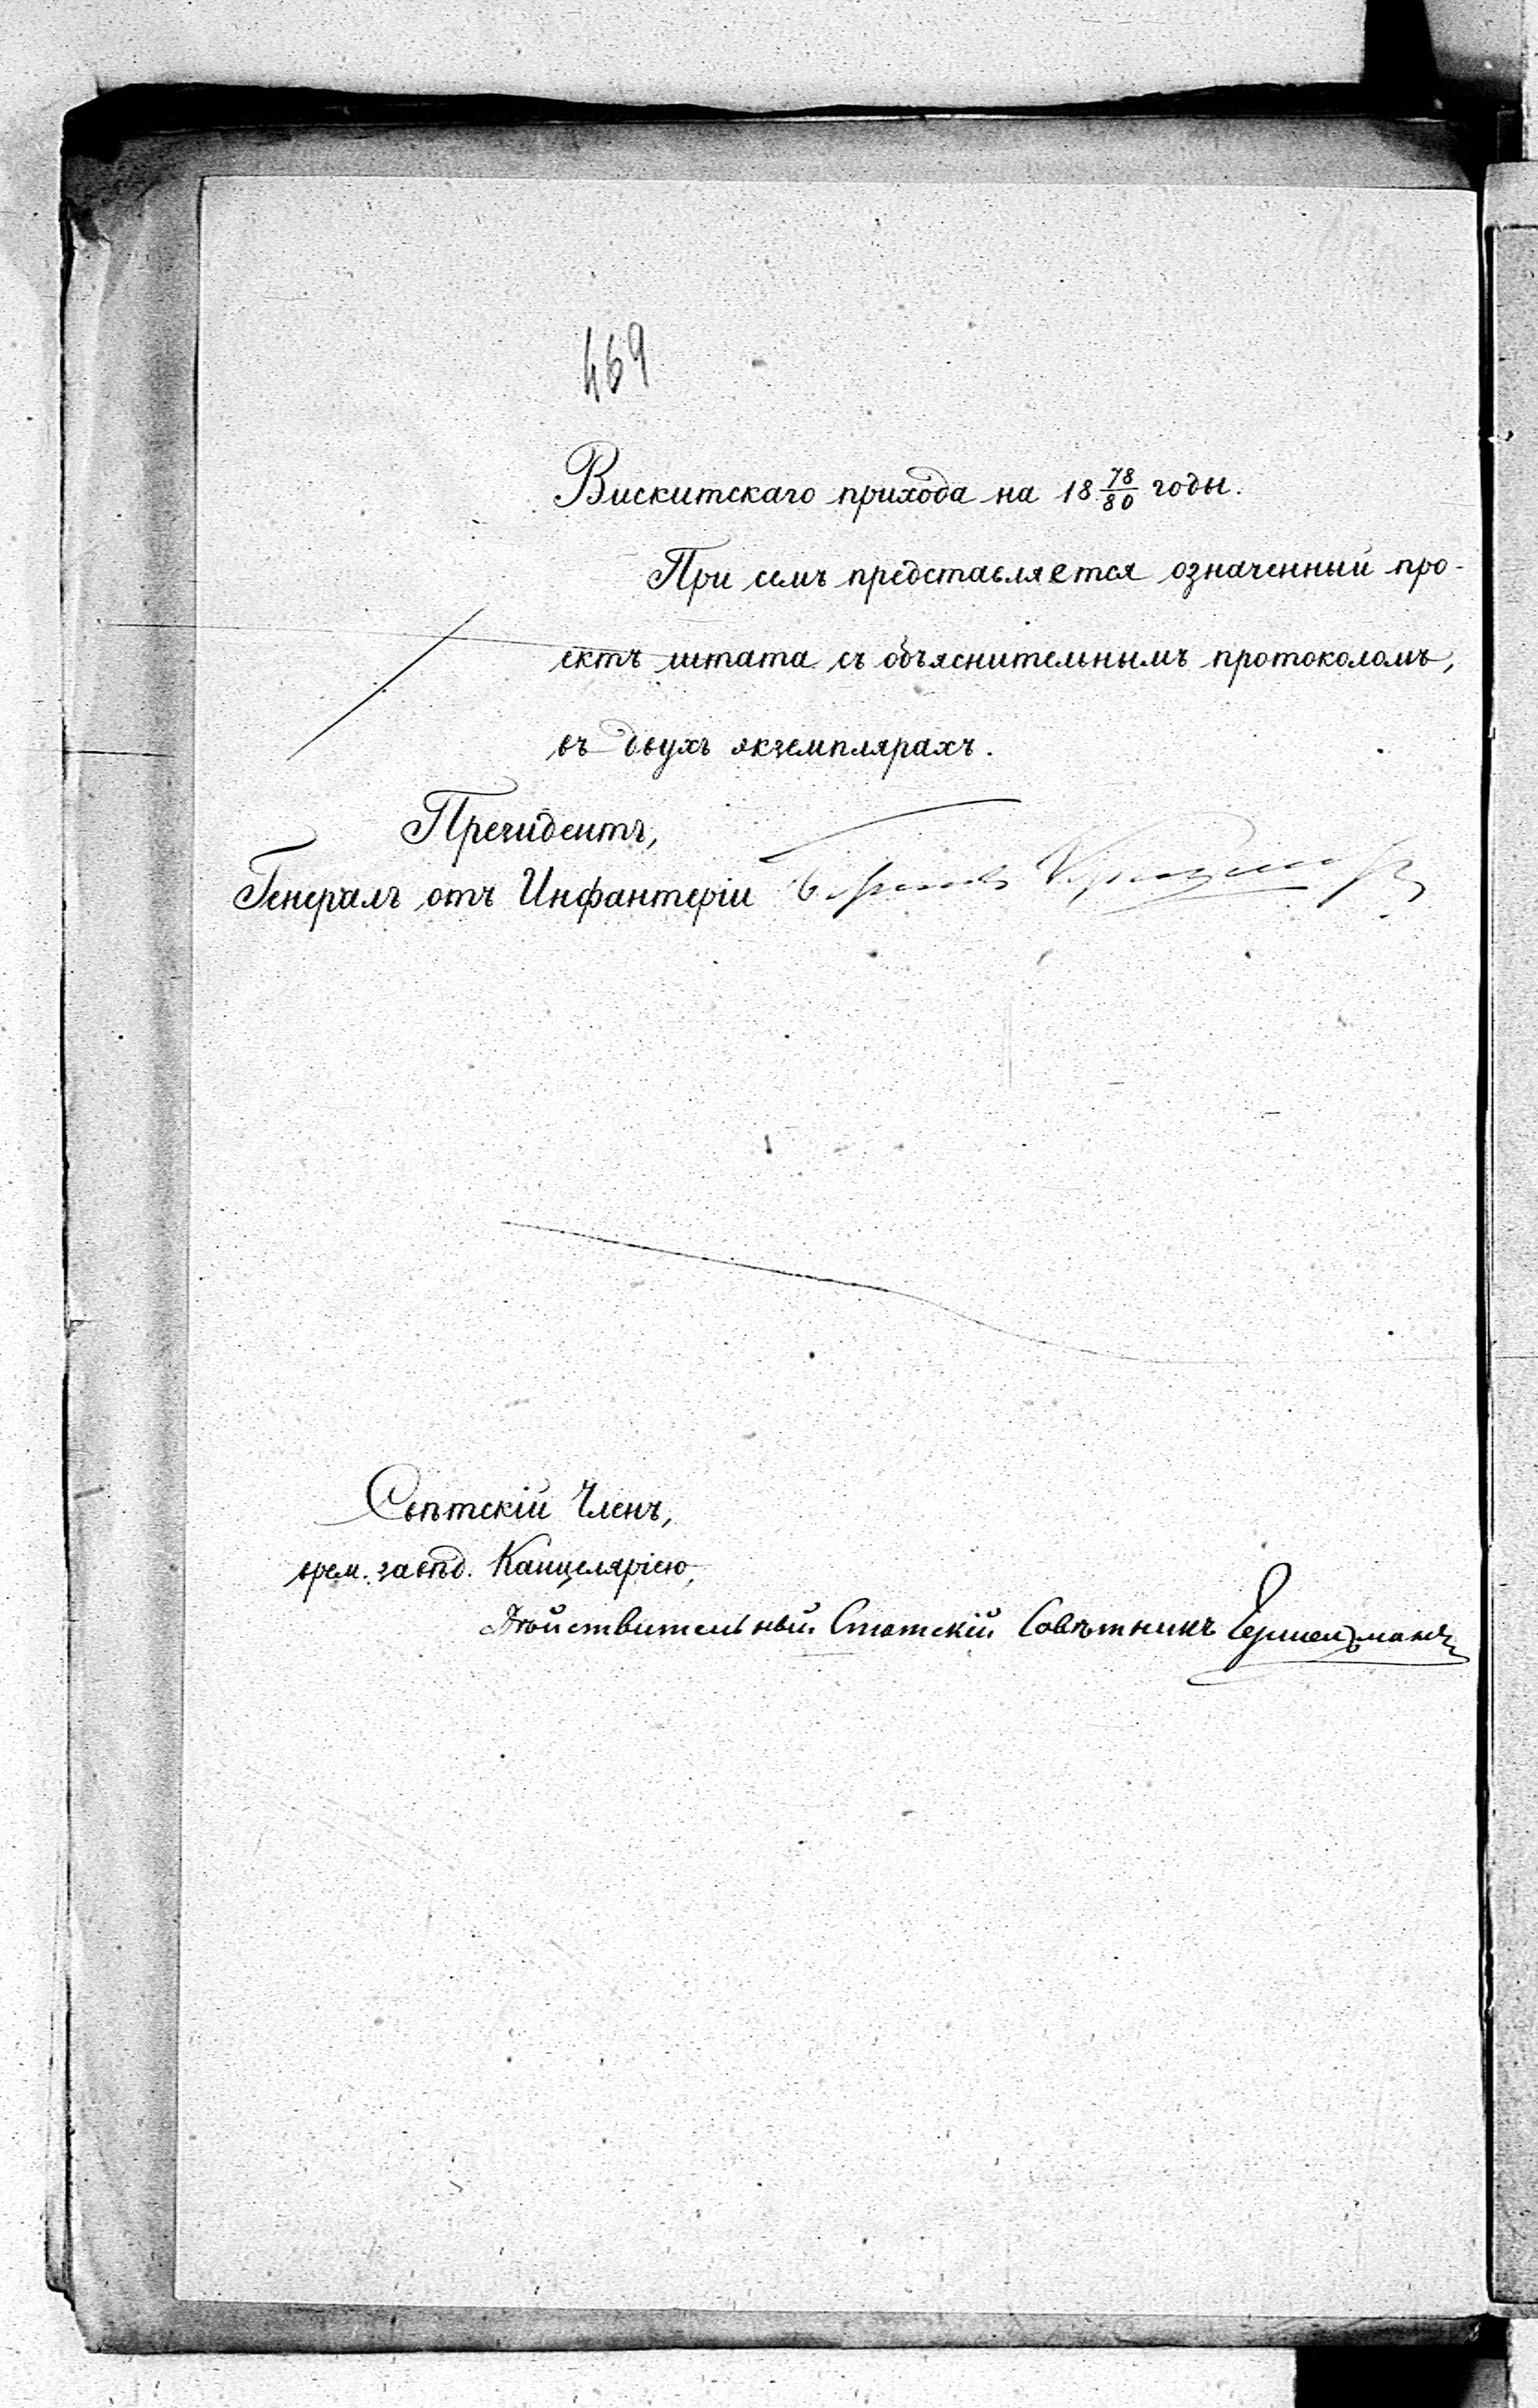 469
Вискитскаго прихода на 18 78/80 годы.
При семъ представляется означенный про-
ектъ штата съ объяснительнымъ протоколомъ,
въ двухъ экземплярахъ.
Президентъ,
Генералъ отъ Инфантеріи
Свѣтскій Членъ,
врем. завѣд. Канцеляріею,
Дѣйствительный Статскій Совѣтникъ Гершельманъ